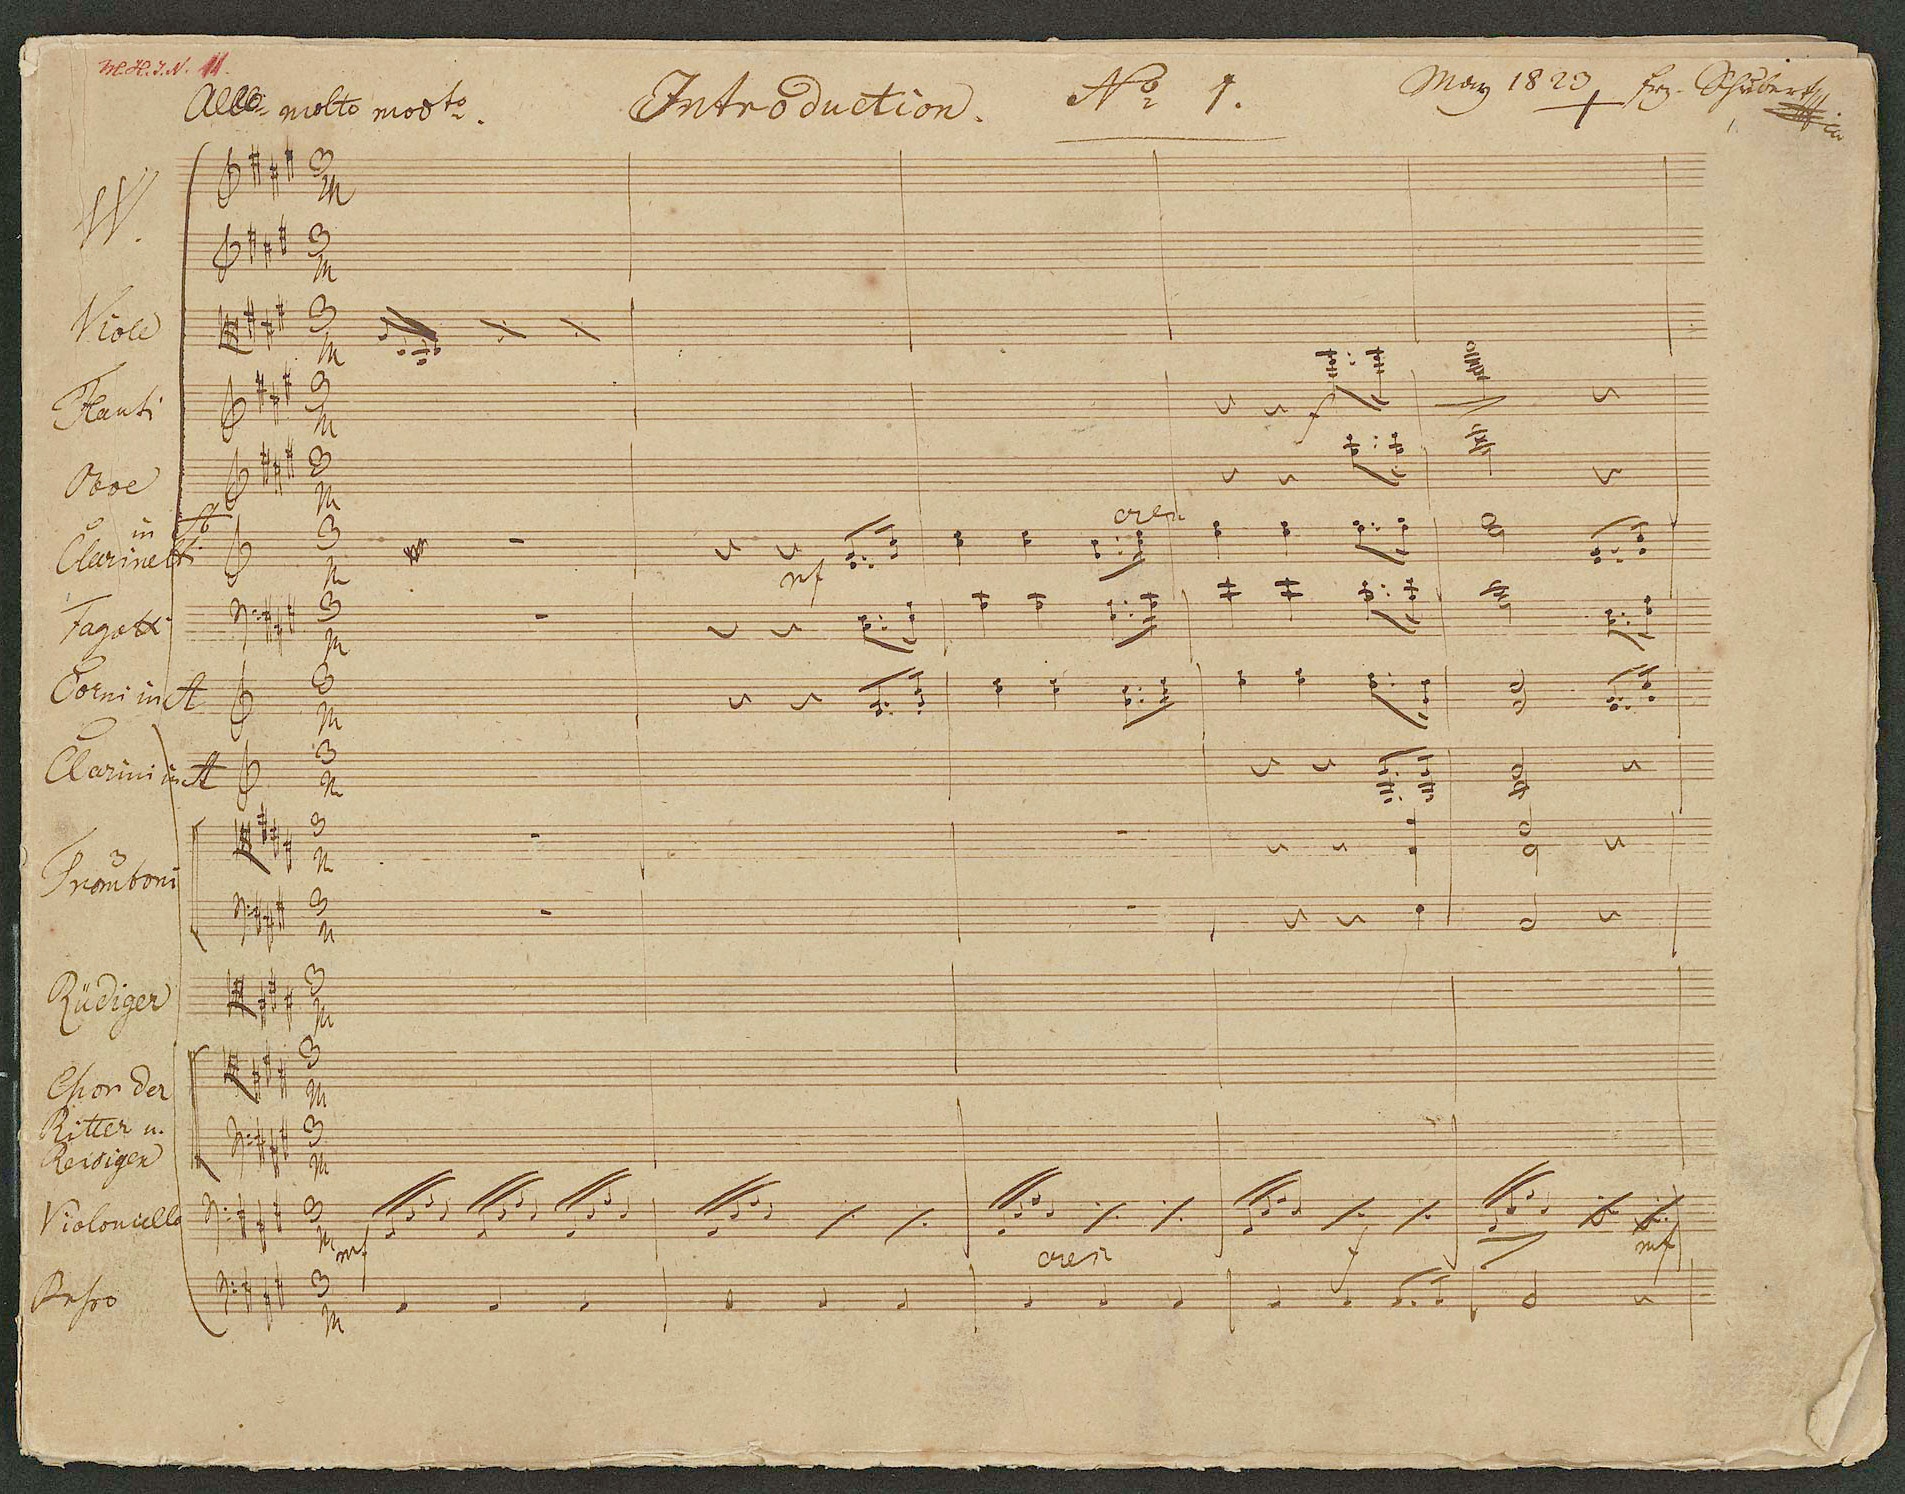 M.H.I.N. 11.
Allo molto modto. Introduction. No 1. May 1823 Frz. Schubert
VV.
Viole
Flauti
f
Oboe
in A
Clarinetti
cresc
mf
Fagotti
Corni in A
Clarini in A
3
Tromboni
Rüdiger
Chor der
Ritter u.
Reisigen
Violoncello
mf cresc f mf
Basso